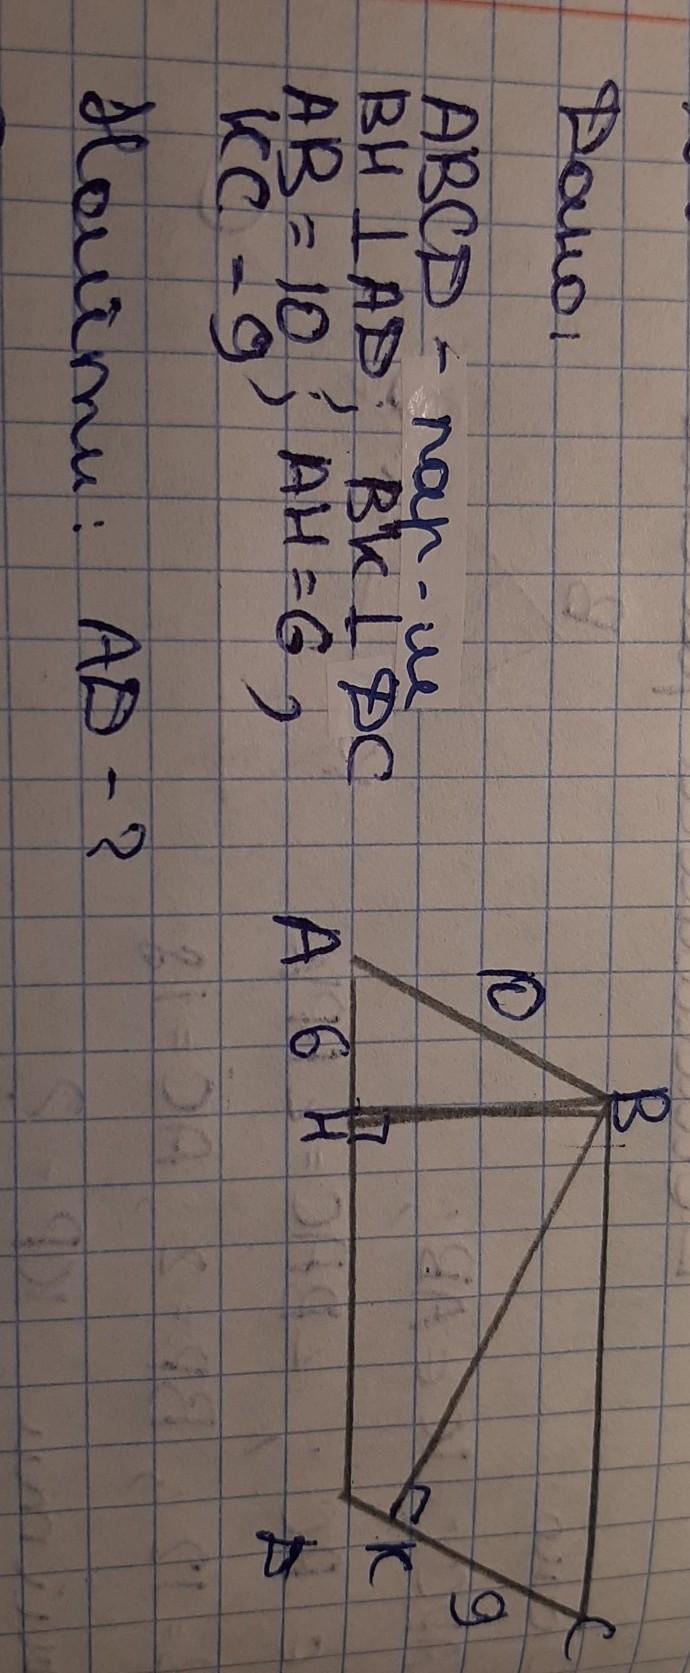 Дано:
ABCD - пар-м
BH ⊥ AD; BK ⊥ DC
AB = 10; AH = 6,
KC - 9,
Найти: AD - ?
B
C
10
9
K
A
6
H
D